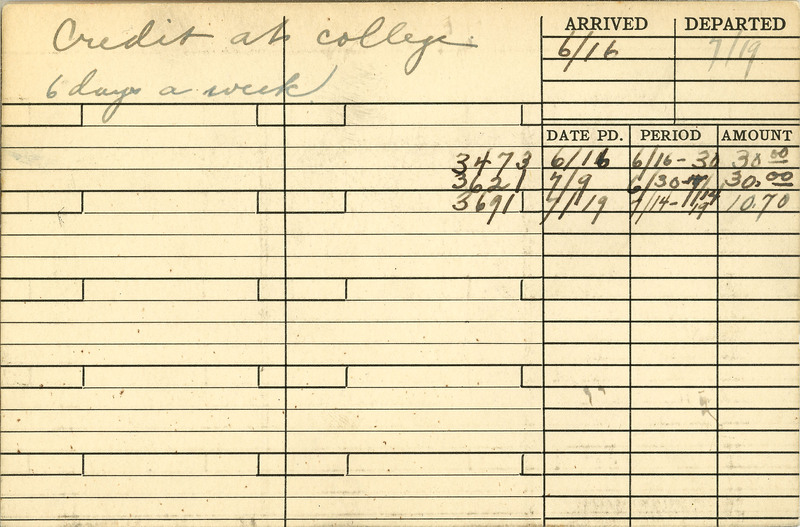 Credit at college
6 days a week
ARRIVED DEPARTED
6/16 7/19
DATE PD. PERIOD AMOUNT
3473 6/16 6/16-30 30 00
3621 7/9 6/30-7/14 30.00
3691 7/19 7/14-7/19 10.70